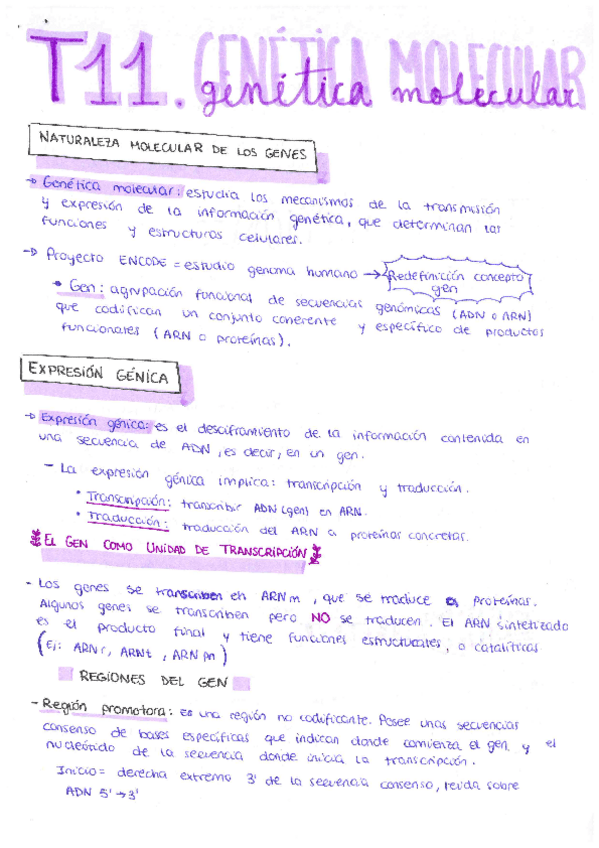 T11. GENÉTICA MOLECULAR
genética molecular
NATURALEZA MOLECULAR DE LOS GENES
→ Genética molecular: estudia los mecanismos de la transmisión
y expresión de la información genética, que determinan las
funciones y estructuras celulares.
→ Proyecto ENCODE = estudio genoma humano → Redefinición concepto
gen
• Gen: agrupación funcional de secuencias genómicas (ADN o ARN)
que codifican un conjunto coherente y específico de productos
funcionales (ARN o proteínas).
EXPRESIÓN GÉNICA
→ Expresión génica: es el desciframiento de la información contenida en
una secuencia de ADN, es decir, en un gen.
- La expresión génica implica: transcripción y traducción.
• Transcripción: transcribir ADN (gen) en ARN.
• Traducción: traducción del ARN a proteínas concretas.
EL GEN COMO UNIDAD DE TRANSCRIPCIÓN
- Los genes se transcriben en ARNm, que se traduce a proteínas.
Algunos genes se transcriben pero NO se traducen. El ARN sintetizado
es el producto final y tiene funciones estructurales, o catalíticas
(Ej: ARNr, ARNt, ARNpn)
REGIONES DEL GEN
- Región promotora: Es una región no codificante. Posee unas secuencias
consenso de bases específicas que indican donde comienza el gen y el
nucleótido de la secuencia donde inicia la transcripción.
Inicio = derecha extremo 3' de la secuencia consenso, leída sobre
ADN 5' → 3'